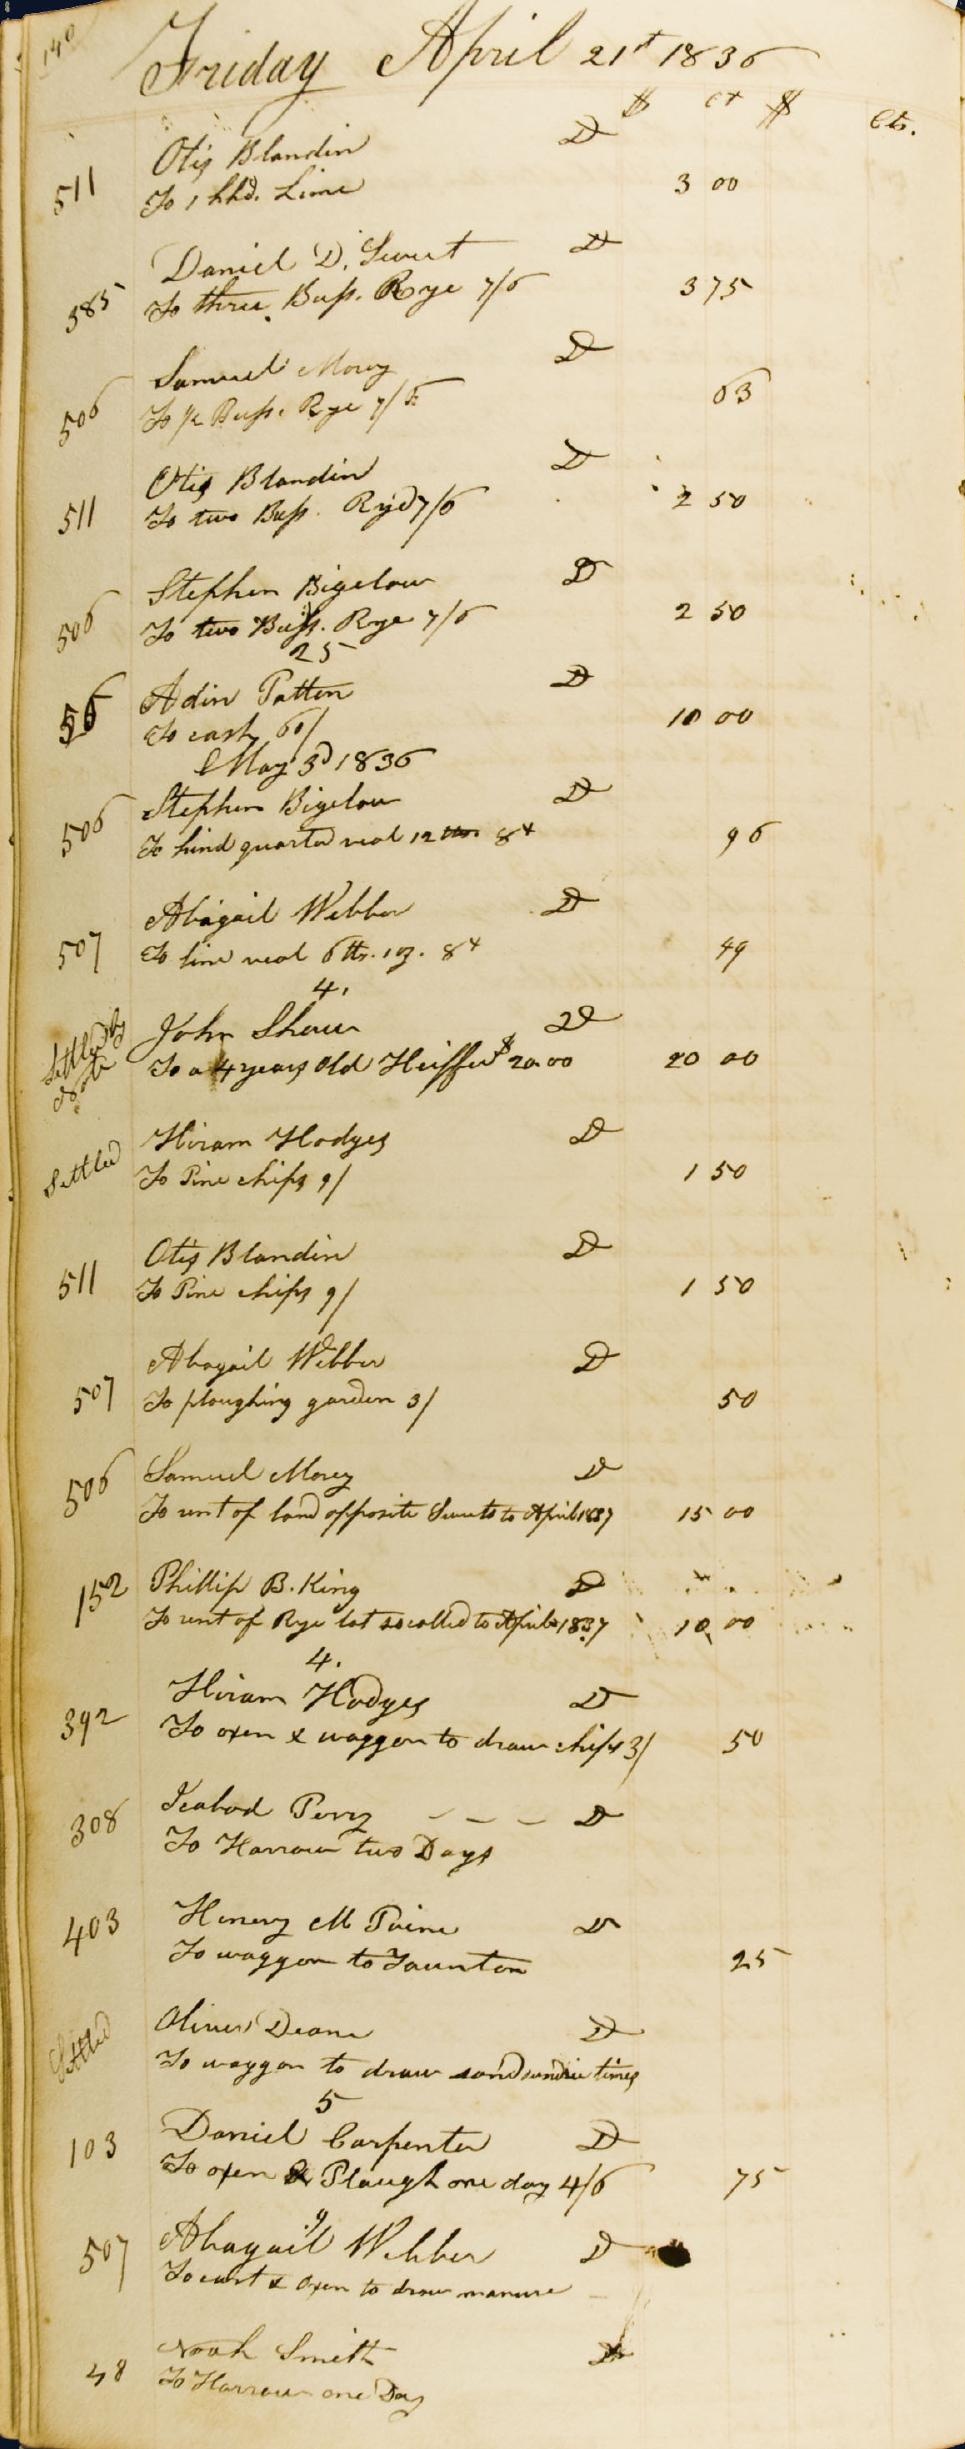 140
Friday April 21st 1836
$ ct $ Cts.
511 Otis Blandin D
To 1 hhd. Lime 3 00
585 Daniel D. Sweet D
To three Bush. Rye 7/6 3 75
506 Samuel Morey D
To 1/2 Bush. Rye 7/6 63
511 Otis Blandin D
To two Bush. Rye 7/6 2 50
506 Stephen Bigelow D
To two Bush. Rye 7/6 2 50
25
56 Adin Patten D
To cash 60/ 10 00
May 3d 1836
506 Stephen Bigelow D
To hind quarter veal 12 lbs 8ct 96
507 Abigail Webber D
To line veal 6 lbs. 1 oz. 8ct 49
4.
Settled by Note John Shaw D
To a 4 years Old Heiffer $20.00 20 00
Settled Hiram Hodges D
To Pine chips 9/ 1 50
511 Otis Blandin D
To Pine chips 9/ 1 50
507 Abagail Webber D
To ploughing garden 3/ 50
506 Samuel Morey D
To rent of land opposite Sweets to April 1837 15 00
152 Phillip B. King D
To rent of Rye lot so called to April 1837 10 00
4.
392 Hiram Hodges D
To oxen & waggon to draw chips 3/ 50
308 Icabod Perry - - - D
To Harrow two Days
403 Henery M Paine D
To waggon to Taunton 25
Settled Oliver Deane D
To waggon to draw sand sundrie times
5
103 Daniel Carpenter D
To oxen & Plaugh one day 4/6 75
9
507 Abagail Webber D
To cart & oxen to draw manure
48 Noah Smith D
To Harrow one Day